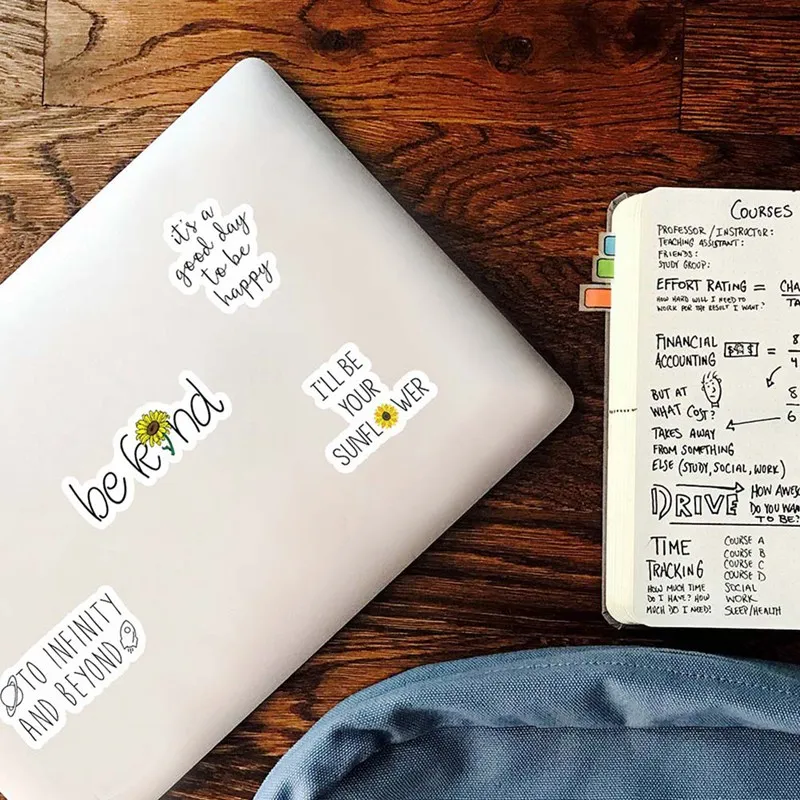 it's a
good day
to be
happy
be kind
I'LL BE
YOUR
SUNFLOWER
TO INFINITY
AND BEYOND
COURSES
PROFESSOR/INSTRUCTOR:
TEACHING ASSISTANT:
FRIENDS:
STUDY GROUP:
EFFORT RATING =
HOW HARD WILL I NEED TO
WORK FOR THE RESULT I WANT?
FINANCIAL
ACCOUNTING $ $ =
8
4
BUT AT
WHAT COST?
8
6
TAKES AWAY
FROM SOMETHING
ELSE (STUDY, SOCIAL, WORK)
DRIVE
HOW
DO YOU
TO BE?
TIME
TRACKING
HOW MUCH TIME
DO I HAVE? HOW
MUCH DO I NEED?
COURSE A
COURSE B
COURSE C
COURSE D
SOCIAL
WORK
SLEEP/HEALTH